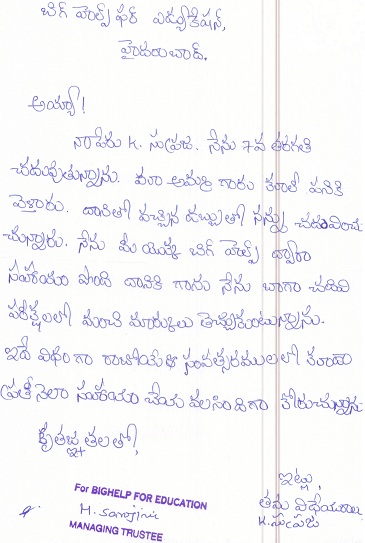 బిగ్ హెల్ప్ ఫర్ ఎడ్యుకేషన్,
హైదరాబాద్.
అయ్యా!
నా పేరు K. సుప్రజ. నేను 7వ తరగతి
చదువుతున్నాను. మా అమ్మ గారు కూలి పనికి
వెళ్తారు. దానితో వచ్చిన డబ్బుతో నన్ను చదివించు
చున్నారు. నేను మీ యొక్క బిగ్ హెల్ప్ ద్వారా
సహాయం పొంది దానికి గాను నేను బాగా చదివి
పరీక్షలలో మంచి మార్కులు తెచ్చుకుంటున్నాను.
ఇదే విధంగా రాబోయే సంవత్సరములలో కూడా
ప్రతీ నెలా సహాయం చేయ వలసిందిగా కోరుచున్నాను
కృతజ్ఞతలతో,
ఇట్లు,
తమ విధేయురాలు
K. సుప్రజ
For BIGHELP FOR EDUCATION
M. Sarojini
MANAGING TRUSTEE